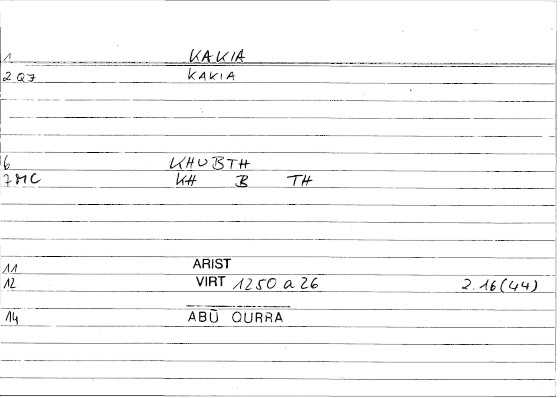 1 KAKIA
2 Q7 KAKIA
6 KHUBTH
7 MC KH B TH
11 ARIST
12 VIRT 1250 a 26 2.16(44)
14 ABŪ QURRA